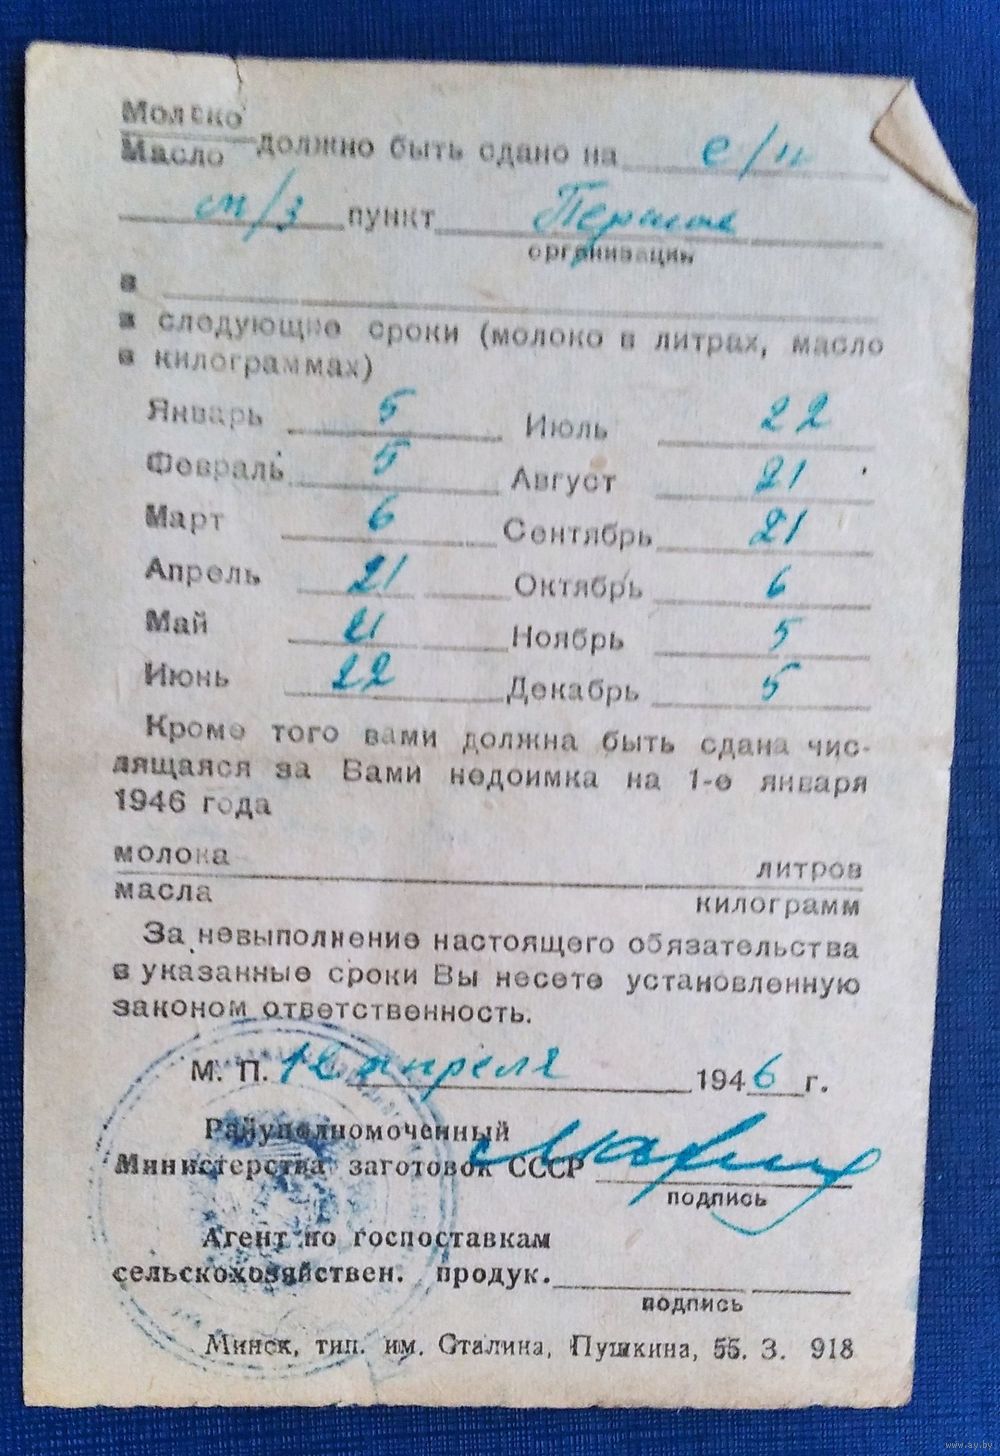 Молоко
Масло должно быть сдано на с/п
м/з пункт
организации
в
в следующие сроки (молоко в литрах, масло
в килограммах)
Январь 5 Июль 22
Февраль 5 Август 21
Март 6 Сентябрь 21
Апрель 21 Октябрь 6
Май 21 Ноябрь 5
Июнь 22 Декабрь 5
Кроме того вами должна быть сдана чис-
лящаяся за Вами недоимка на 1-е января
1946 года
молока литров
масла килограмм
За невыполнение настоящего обязательства
в указанные сроки Вы несете установленную
законом ответственность.
М. П. 12 апреля 1946 г.
Райуполномоченный
Министерства заготовок СССР
подпись
Агент по госпоставкам
сельскохозяйствен. продук.
подпись
Минск, тип. им. Сталина, Пушкина, 55. З. 918
www.ay.by